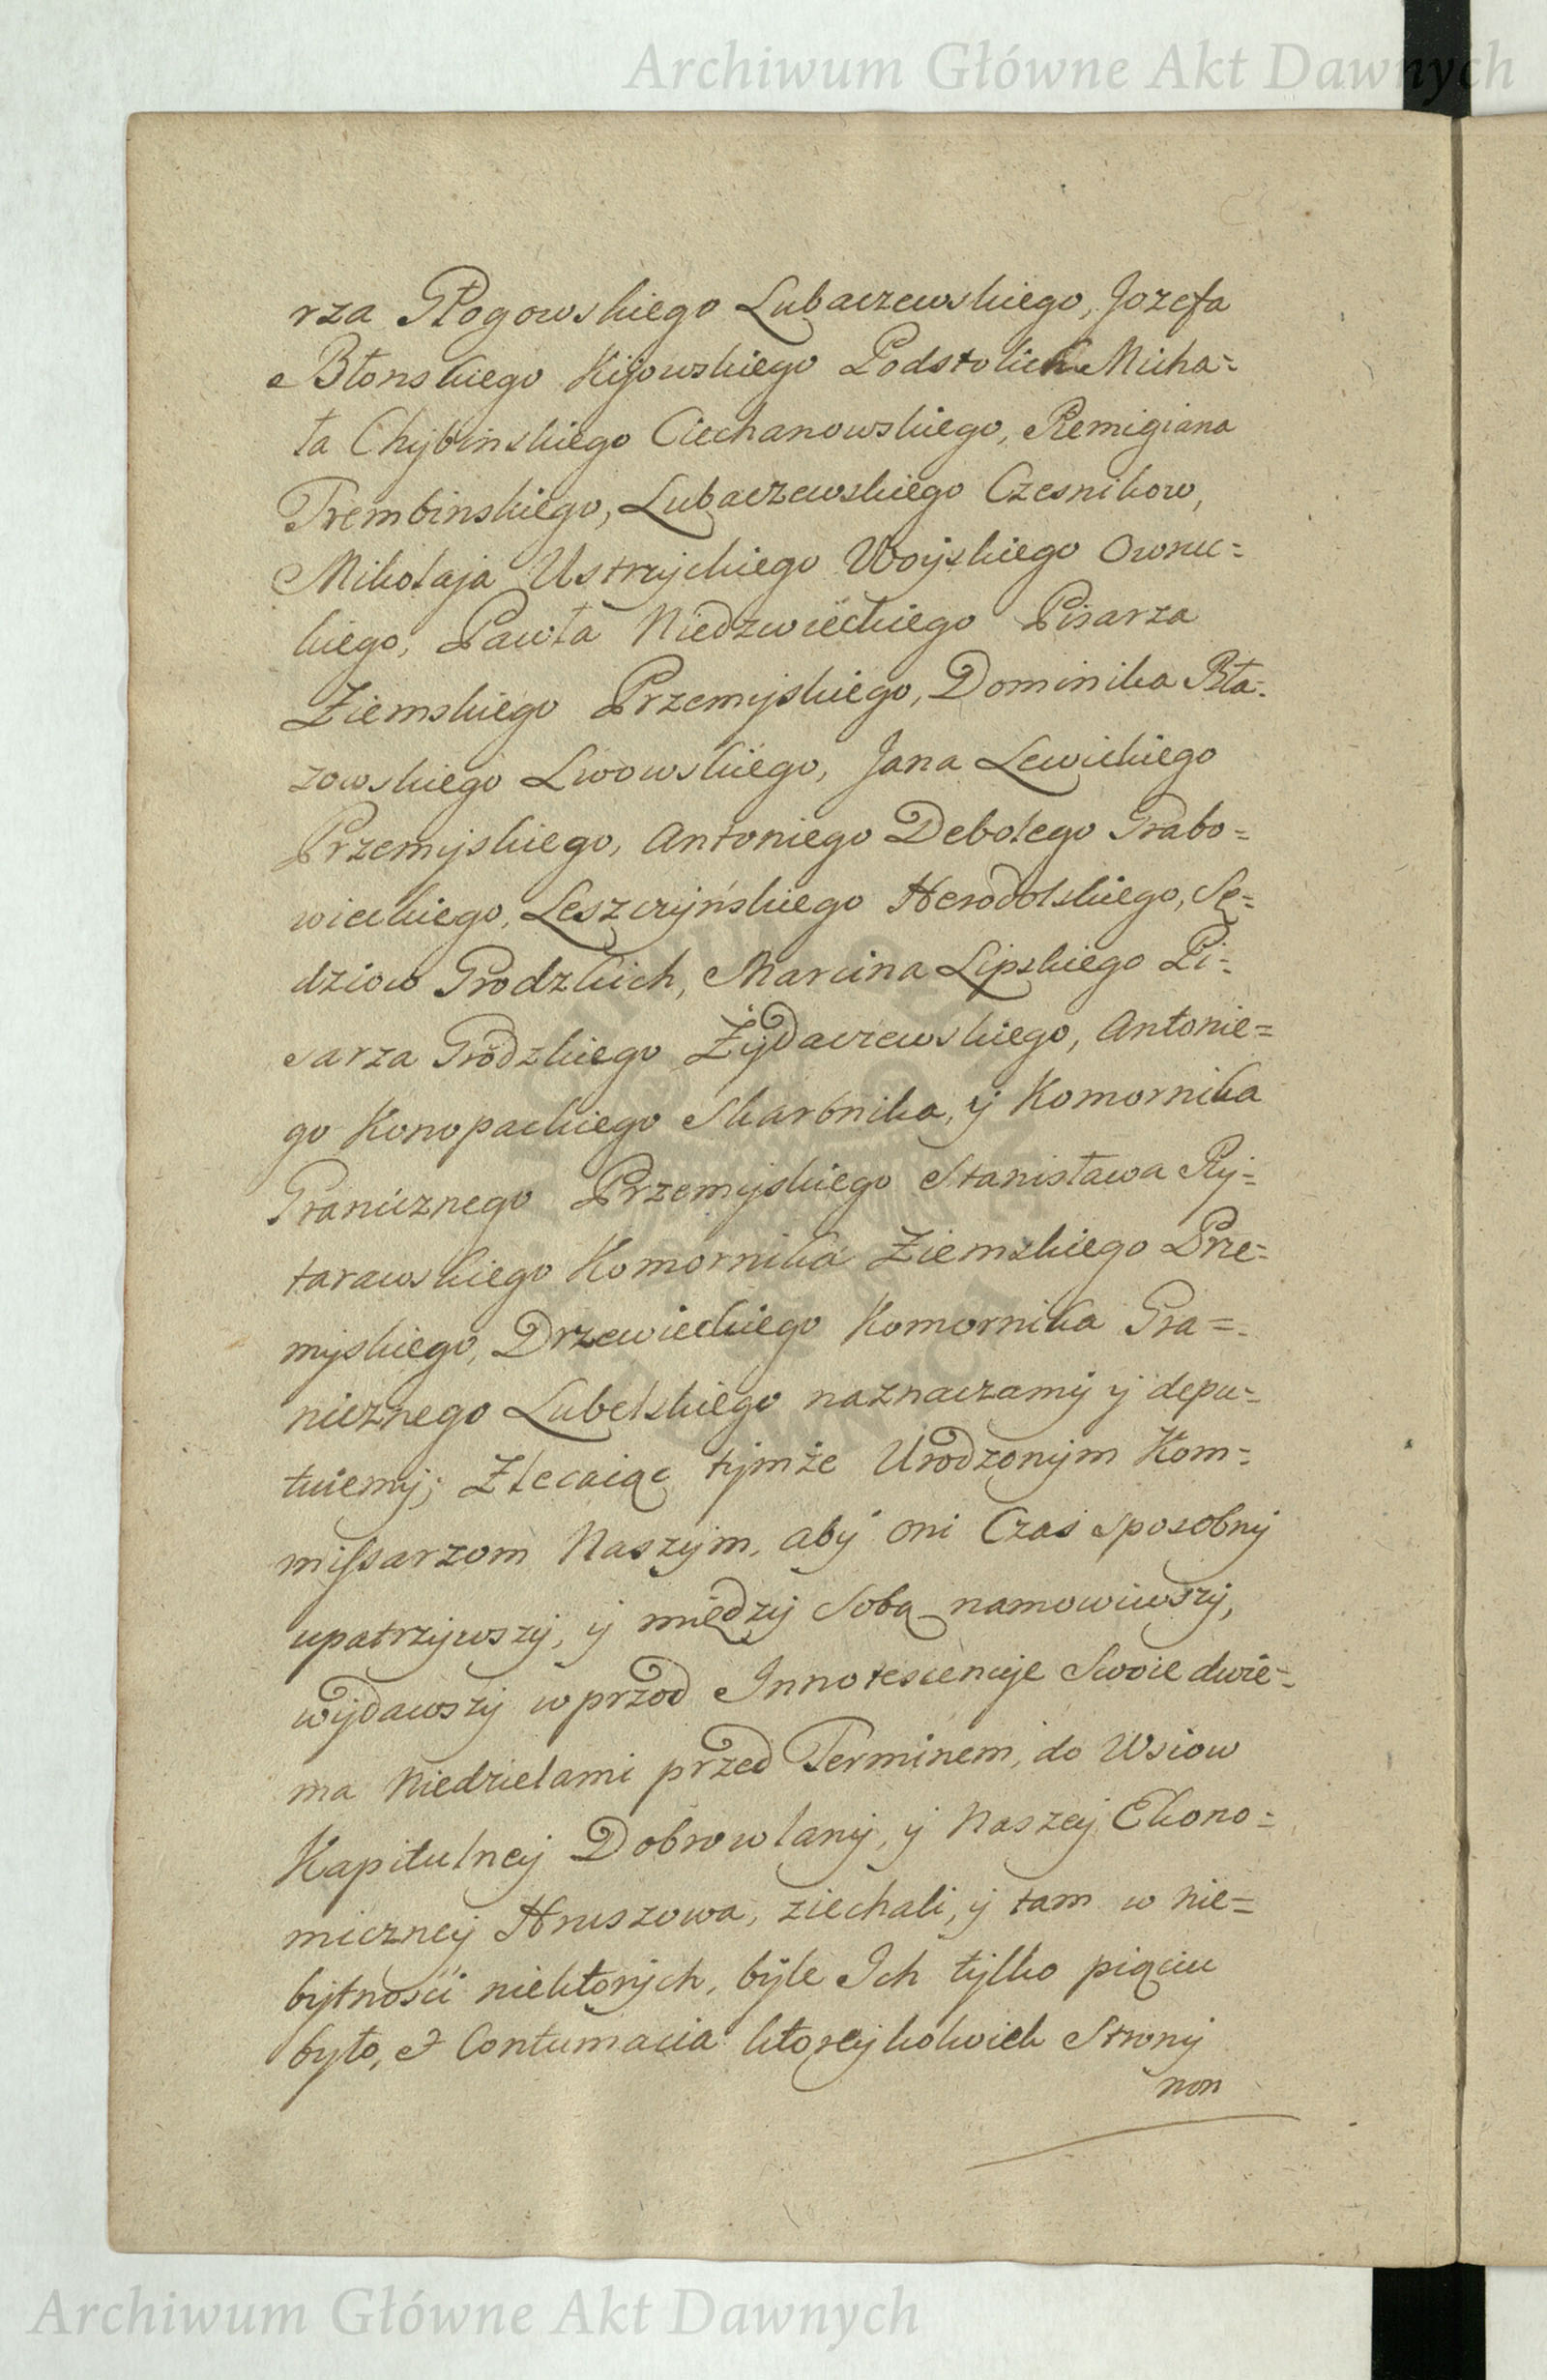 Archiwum Główne Akt Dawnych
rza Głogowskiego Lubaczewskiego, Jozefa
Błonskiego Kijowskiego Podstolich Micha=
ła Chybinskiego Ciechanowskiego, Remigiana
Trembinskiego, Lubaczewskiego Czesnikow,
Mikołaja Ustrzyckiego Woyskiego Owruc=
kiego, Pawła Niedzwieckiego Pisarza
Ziemskiego Przemyskiego, Dominika Bła=
zowskiego Lwowskiego, Jana Lewickiego
Przemyskiego, Antoniego Debolego Grabo=
wieckiego, Leszczyńskiego Horodolskiego, Sę=
dziow Grodzkich, Marcina Lipskiego Pi=
sarza Grodzkiego Żydaczewskiego, Antonie=
go Konopackiego Skarbnika, y Komornika
Granicznego Przemyskiego Stanisława Ry=
tarawskiego Komornika Ziemskiego Prze=
myskiego, Drzewieckiego Komornika Gra=
nicznego Lubelskiego naznaczamy y depu=
tuiemy; Zlecaiąc tymże Urodzonym Kom=
missarzom Naszym, aby oni Czas sposobny
upatrzywszy, y między sobą namowiwszy,
wydawszy wprzod Innotescencye Swoie dwie=
ma Niedzielami przed Terminem, do Wsiow
Kapitulney Dobrowlany, y Naszey Ekono=
miczney Hruszowa, ziechali, y tam w nie=
bytnosci niektorych, byle Ich tylko pięciu
było, et Contumacia ktoreykolwiek Strony
non
Archiwum Główne Akt Dawnych